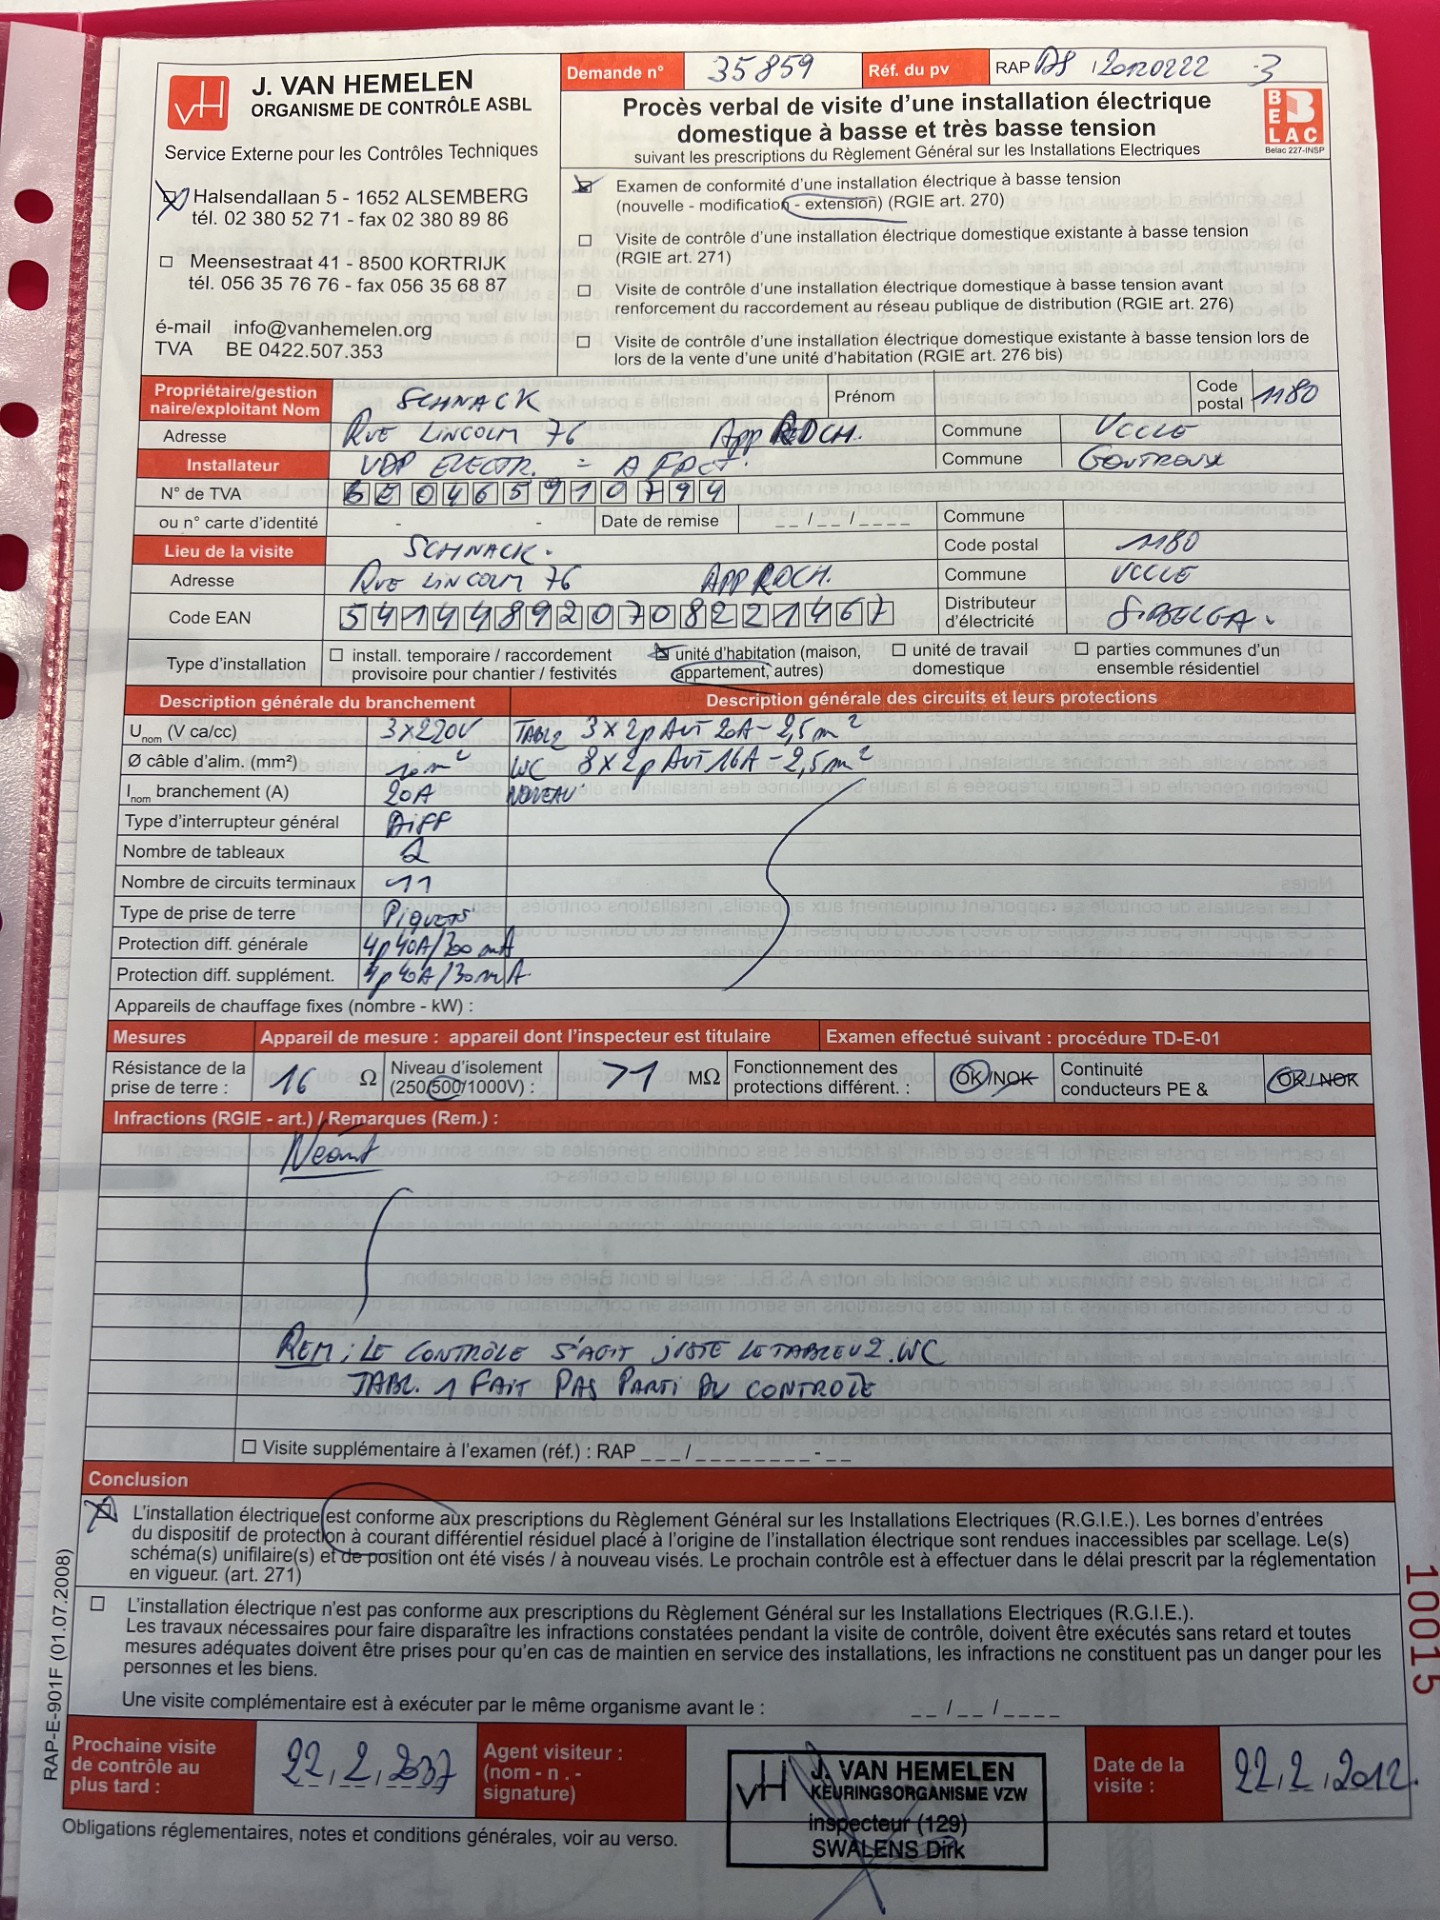 J. VAN HEMELEN
ORGANISME DE CONTRÔLE ASBL
Service Externe pour les Contrôles Techniques
Halsendallaan 5 - 1652 ALSEMBERG
tél. 02 380 52 71 - fax 02 380 89 86
Meensestraat 41 - 8500 KORTRIJK
tél. 056 35 76 76 - fax 056 35 68 87
é-mail info@vanhemelen.org
TVA BE 0422.507.353
Demande n° 35859 Réf. du pv RAP DS /20120222 -3
Procès verbal de visite d'une installation électrique
domestique à basse et très basse tension
suivant les prescriptions du Règlement Général sur les Installations Electriques
BELAC
Belac 227-INSP
Examen de conformité d'une installation électrique à basse tension
(nouvelle - modification - extension) (RGIE art. 270)
Visite de contrôle d'une installation électrique domestique existante à basse tension
(RGIE art. 271)
Visite de contrôle d'une installation électrique domestique à basse tension avant
renforcement du raccordement au réseau publique de distribution (RGIE art. 276)
Visite de contrôle d'une installation électrique domestique existante à basse tension lors de
lors de la vente d'une unité d'habitation (RGIE art. 276 bis)
Propriétaire/gestion
naire/exploitant Nom SCHNACK Prénom Code postal 1180
Adresse RUE LINCOLM 76 APP RDCH. Commune UCCLE
Installateur VDP ELECTR. = A FACT. Commune GOUTROUX
N° de TVA BE 0465910794
ou n° carte d'identité - - Date de remise __ /__ /____ Commune
Lieu de la visite SCHNACK. Code postal 1180
Adresse RUE LINCOLM 76 APP RDCH. Commune UCCLE
Code EAN 541448920708221467 Distributeur d'électricité SIBELGA.
Type d'installation
install. temporaire / raccordement
provisoire pour chantier / festivités
unité d'habitation (maison,
appartement, autres)
unité de travail
domestique
parties communes d'un
ensemble résidentiel
Description générale du branchement Description générale des circuits et leurs protections
Unom (V ca/cc) 3x220V TABL2 3x2p AUT 20A - 2,5m²
Ø câble d'alim. (mm²) 10m² WC 8x2p AUT 16A - 2,5m²
Inom branchement (A) 20A NOUVEAU
Type d'interrupteur général DIFF
Nombre de tableaux 2
Nombre de circuits terminaux 11
Type de prise de terre PIQUETS
Protection diff. générale 4p 40A/300mA
Protection diff. supplément. 4p 40A/30mA.
Appareils de chauffage fixes (nombre - kW) :
Mesures Appareil de mesure : appareil dont l'inspecteur est titulaire Examen effectué suivant : procédure TD-E-01
Résistance de la
prise de terre : 16 Ω
Niveau d'isolement
(250/500/1000V) : >1 MΩ
Fonctionnement des
protections différent. : OK/NOK
Continuité
conducteurs PE & OK/NOK
Infractions (RGIE - art.) / Remarques (Rem.) :
Néant
REM : LE CONTRÔLE S'AGIT JUSTE LE TABLEU 2. WC
TABL. 1 FAIT PAS PARTI DU CONTROLE
Visite supplémentaire à l'examen (réf.) : RAP ___/________-__
Conclusion
L'installation électrique est conforme aux prescriptions du Règlement Général sur les Installations Electriques (R.G.I.E.). Les bornes d'entrées
du dispositif de protection à courant différentiel résiduel placé à l'origine de l'installation électrique sont rendues inaccessibles par scellage. Le(s)
schéma(s) unifilaire(s) et de position ont été visés / à nouveau visés. Le prochain contrôle est à effectuer dans le délai prescrit par la réglementation
en vigueur. (art. 271)
L'installation électrique n'est pas conforme aux prescriptions du Règlement Général sur les Installations Electriques (R.G.I.E.).
Les travaux nécessaires pour faire disparaître les infractions constatées pendant la visite de contrôle, doivent être exécutés sans retard et toutes
mesures adéquates doivent être prises pour qu'en cas de maintien en service des installations, les infractions ne constituent pas un danger pour les
personnes et les biens.
Une visite complémentaire est à exécuter par le même organisme avant le : __ /__ /____
Prochaine visite
de contrôle au
plus tard : 22,2,2037
Agent visiteur :
(nom - n . -
signature)
vH J. VAN HEMELEN
KEURINGSORGANISME VZW
inspecteur (129)
SWALENS Dirk
Date de la
visite : 22,2,2012.
Obligations réglementaires, notes et conditions générales, voir au verso.
RAP-E-901F (01.07.2008)
10015